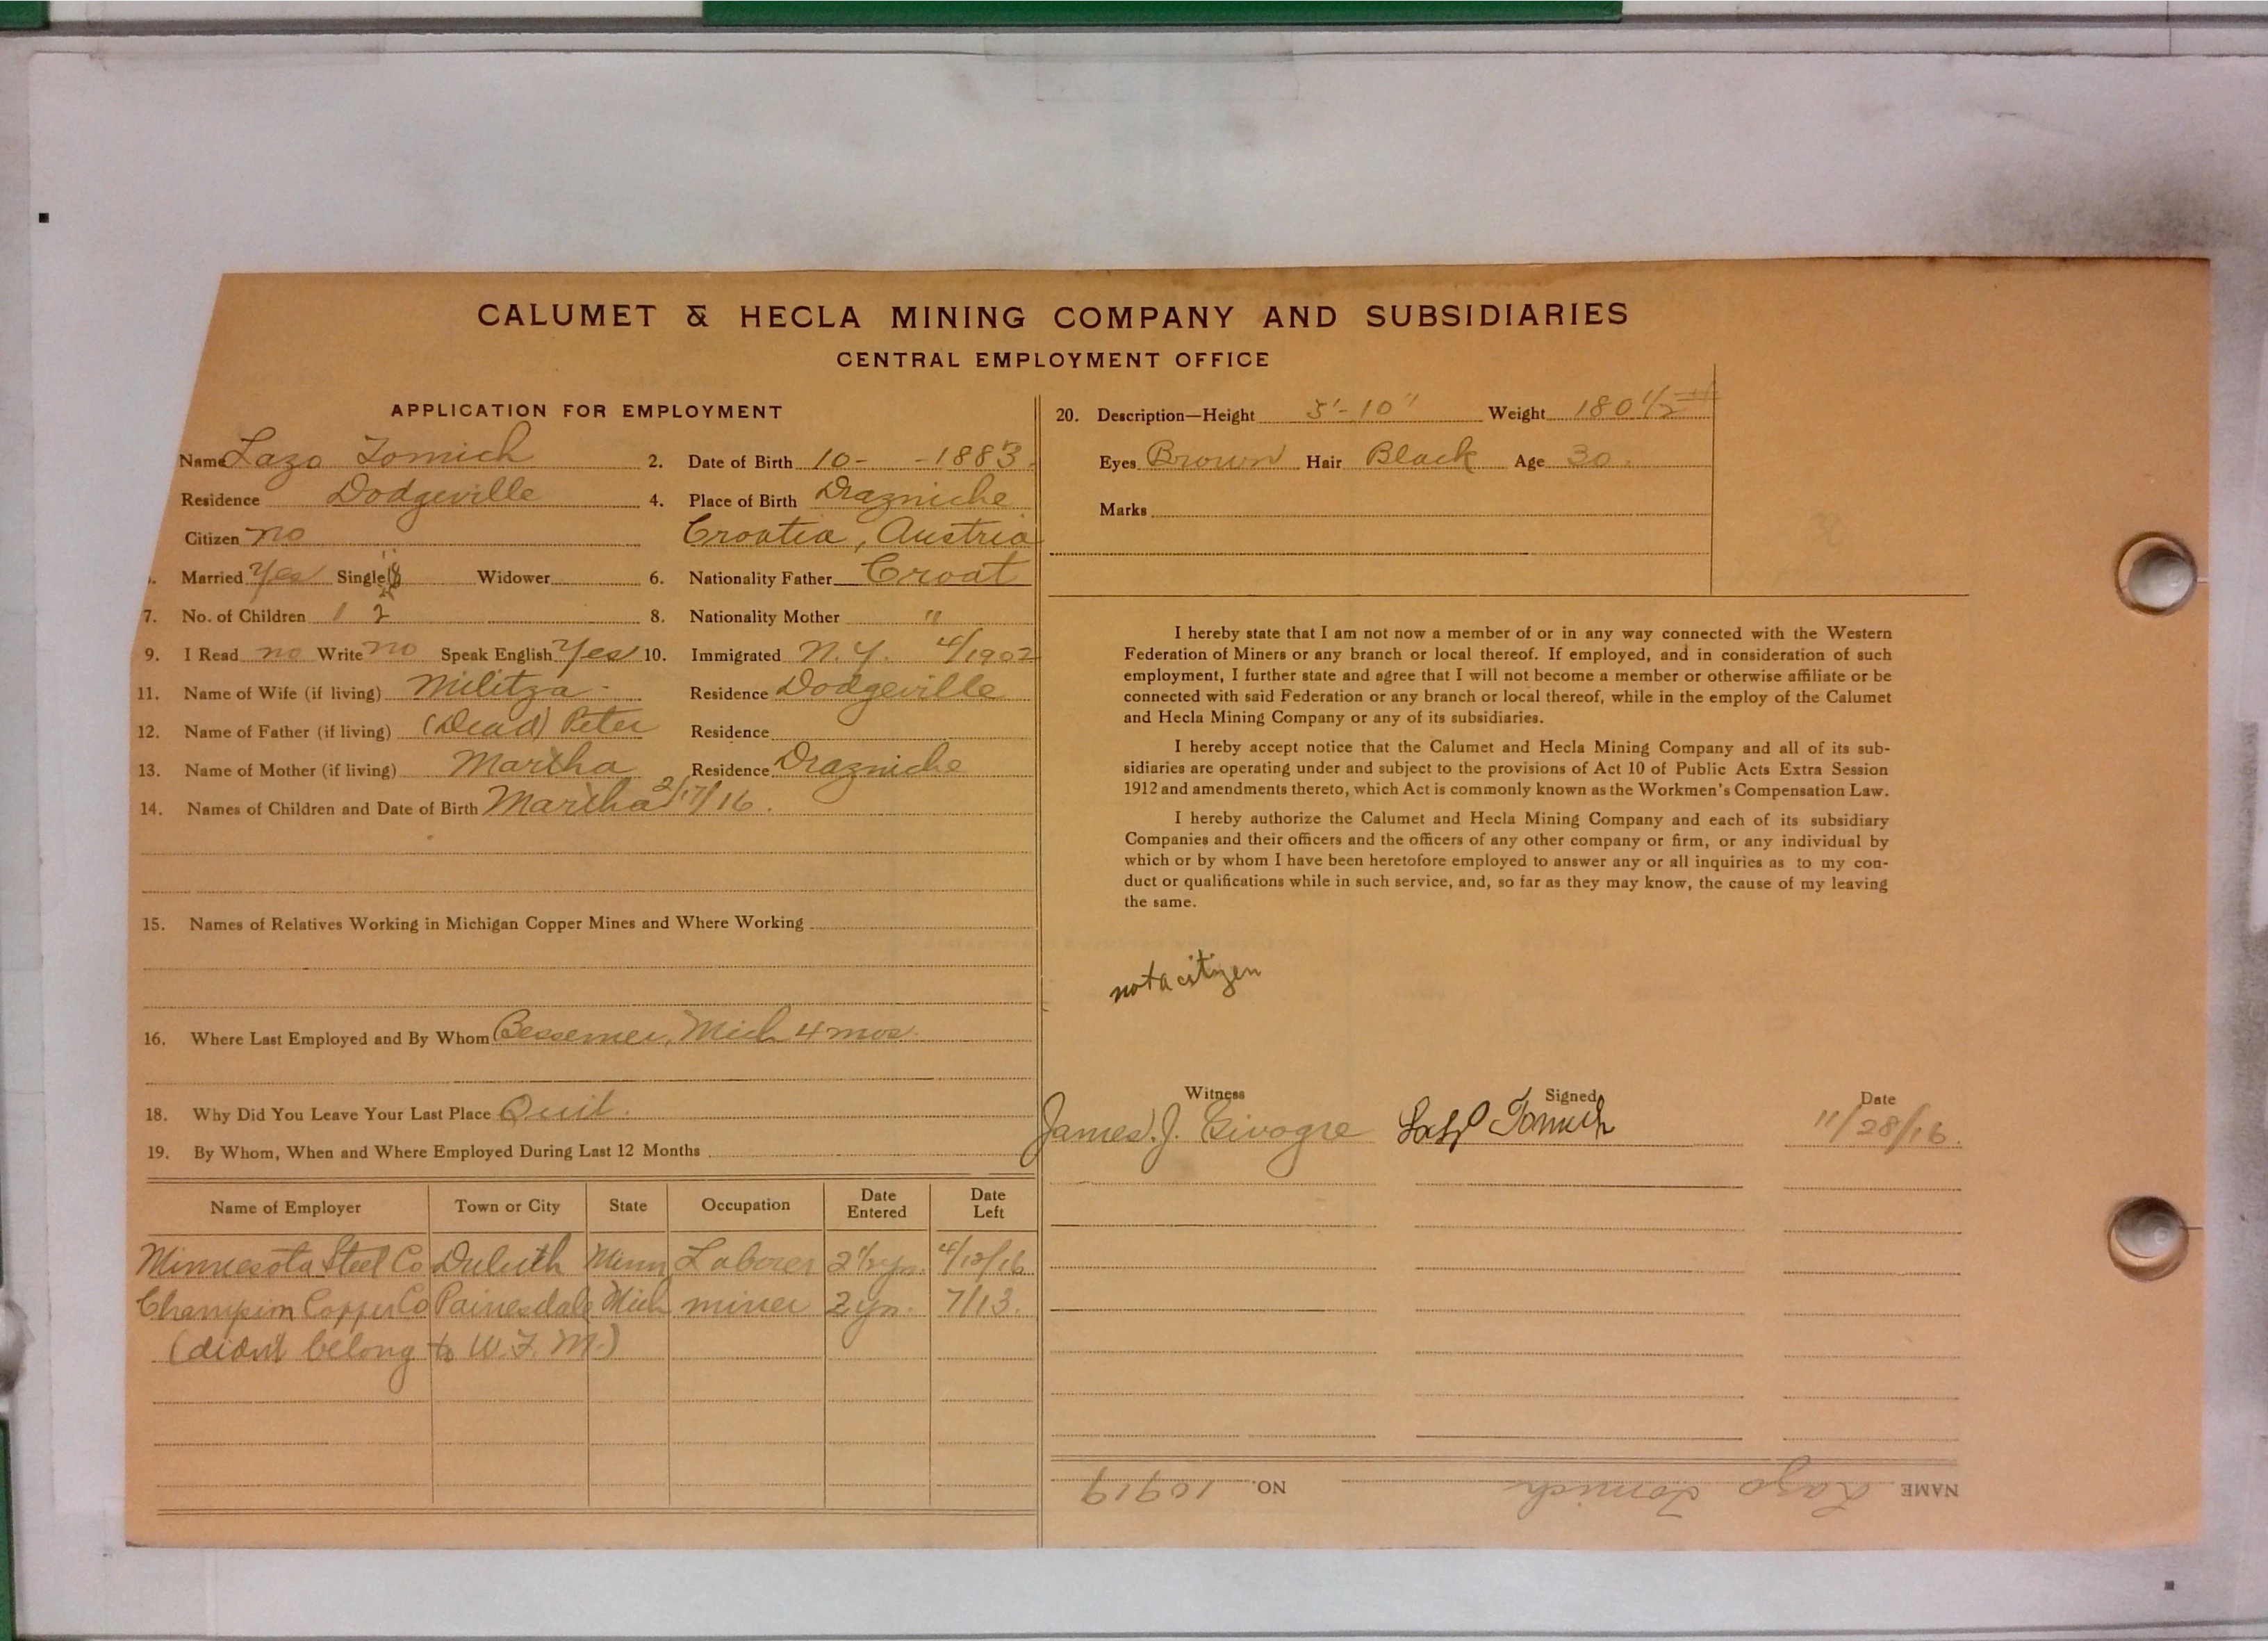 CALUMET & HECLA MINING COMPANY AND SUBSIDIARIES
CENTRAL EMPLOYMENT OFFICE
APPLICATION FOR EMPLOYMENT
Name Lazo Tomich 2. Date of Birth 10- -1883.
Residence Dodgeville 4. Place of Birth Drazniche
Citizen no Croatia, Austria
Married Yes Single Widower 6. Nationality Father Croat
7. No. of Children 1 2 8. Nationality Mother "
9. I Read no Write no Speak English Yes 10. Immigrated N.Y. 4/1902
11. Name of Wife (if living) Militza Residence Dodgeville
12. Name of Father (if living) (Dead) Peter Residence
13. Name of Mother (if living) Martha Residence Drazniche
14. Names of Children and Date of Birth Martha 2/17/16.
15. Names of Relatives Working in Michigan Copper Mines and Where Working
16. Where Last Employed and By Whom Bessemer, Mich 4 mos.
18. Why Did You Leave Your Last Place Quit.
19. By Whom, When and Where Employed During Last 12 Months
Name of Employer Town or City State Occupation Date Entered Date Left
Minnesota Steel Co Duluth Minn Laborer 2 1/2 yrs. 4/12/16
Champion Copper Co Painesdale Mich miner 2 yrs. 7/13.
(didn't belong to W.F.M.)
20. Description—Height 5'-10" Weight 180 1/2
Eyes Brown Hair Black Age 30.
Marks
I hereby state that I am not now a member of or in any way connected with the Western
Federation of Miners or any branch or local thereof. If employed, and in consideration of such
employment, I further state and agree that I will not become a member or otherwise affiliate or be
connected with said Federation or any branch or local thereof, while in the employ of the Calumet
and Hecla Mining Company or any of its subsidiaries.
I hereby accept notice that the Calumet and Hecla Mining Company and all of its sub-
sidiaries are operating under and subject to the provisions of Act 10 of Public Acts Extra Session
1912 and amendments thereto, which Act is commonly known as the Workmen's Compensation Law.
I hereby authorize the Calumet and Hecla Mining Company and each of its subsidiary
Companies and their officers and the officers of any other company or firm, or any individual by
which or by whom I have been heretofore employed to answer any or all inquiries as to my con-
duct or qualifications while in such service, and, so far as they may know, the cause of my leaving
the same.
not a citizen
Witness Signed Date
James J. Tomich 11/28/16.
NAME Lazo Tomich NO. 10919